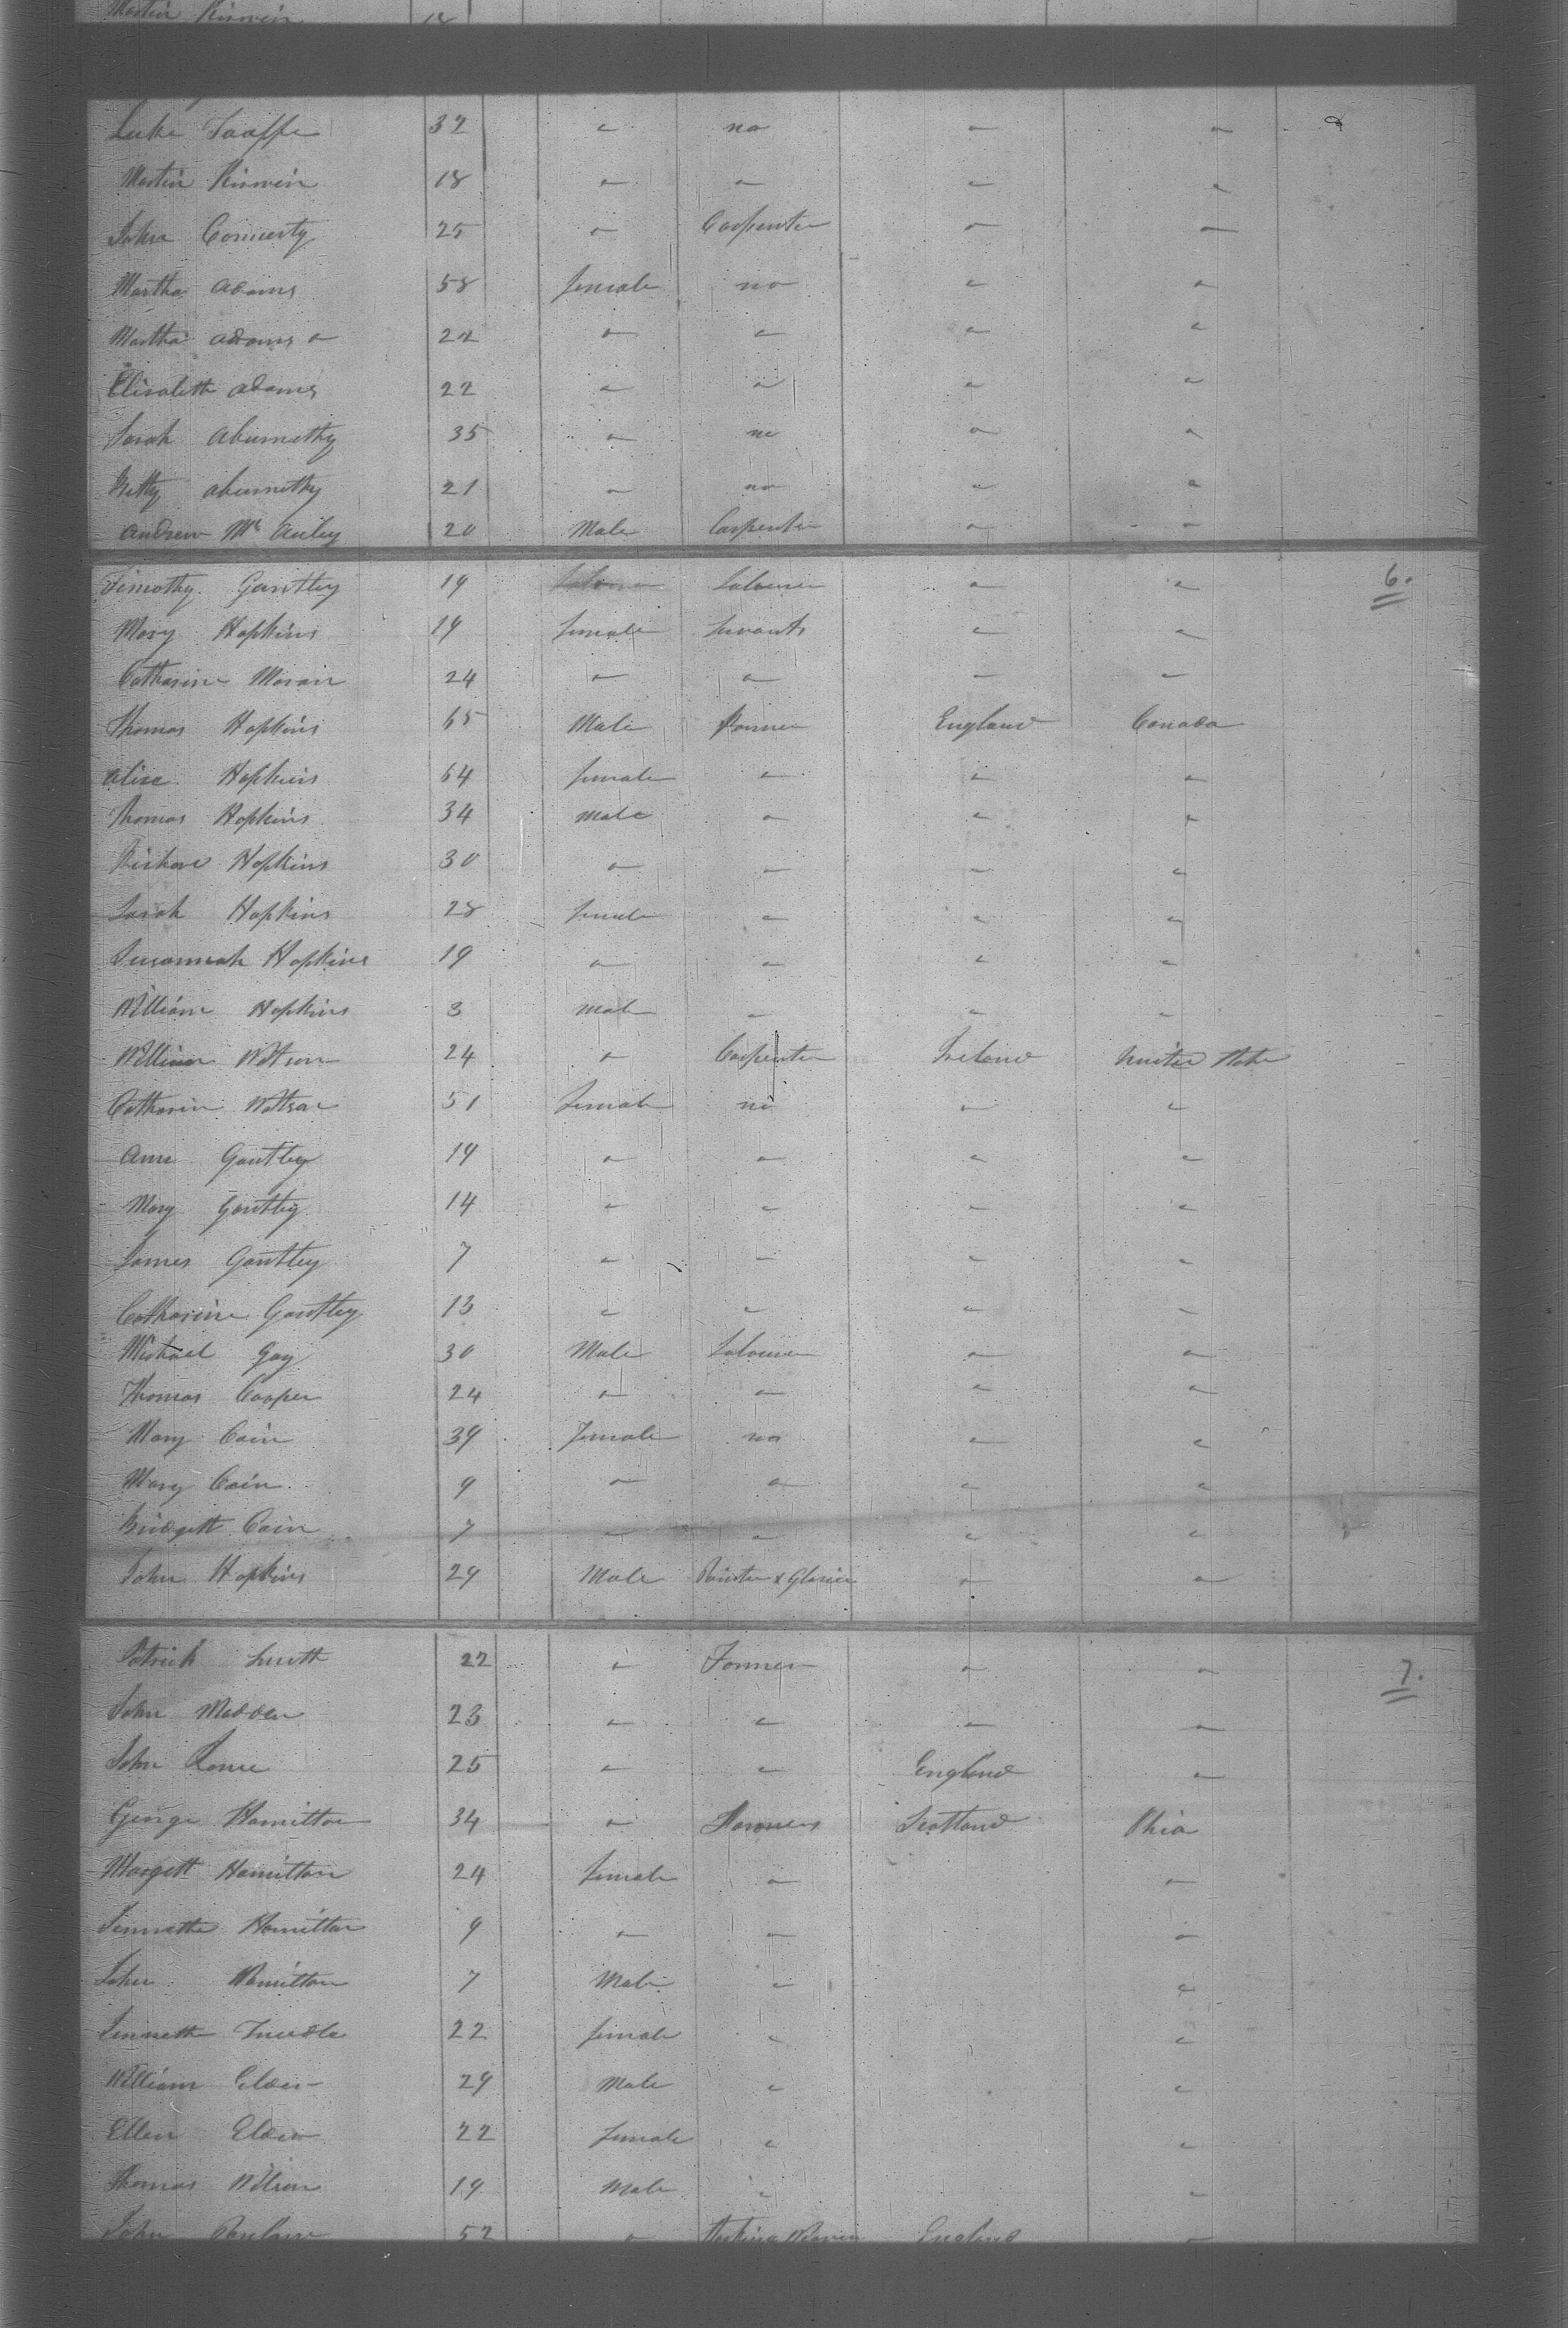 Martin Kirwein 18
Luke Taaffe 32 " no " "
Martin Kirwein 18 " " " "
John 25 " Carpenter " "
Martha Adams 58 female no " "
Martha Adams " 22 " " " "
Elisabeth Adams 22 " " " "
Sarah Abernethy 35 " no " "
Betty Abernethy 21 " no " "
Andrew Mc Auley 20 Male Carpenter " "
Timothy Gantley 19 Labourer " " 6.
Mary Hopkins 19 female Servants " "
Catharine Moran 24 " " " "
Thomas Hopkins 65 Male Farmer England Canada
Alice Hopkins 64 female " " "
Thomas Hopkins 34 Male " " "
Richard Hopkins 30 " " " "
Sarah Hopkins 28 female " " "
Susannah Hopkins 19 " " " "
William Hopkins 3 Male " " "
William Watson 24 " Carpenter Ireland United State
Catharin Watson 51 female no " "
Ann Gantley 19 " " " "
Mary Gantley 14 " " " "
James Gantley 7 " " " "
Catharine Gantley 13 " " " "
Michael Gay 30 Male Labourer " "
Thomas Cooper 24 " " " "
Mary Cain 39 Female no " "
Mary Cain 9 " " " "
Bridgett Cain 7 " " " "
John Hopkins 29 Male Painter & Glasier " "
Patrick 22 " Farmer " " 7.
John Madden 23 " " " "
John 25 " " England "
George Hamilton 34 " Farmers Scotland Ohio
Margett Hamilton 24 female " "
Jennette Hamilton 9 " " "
John Hamilton 7 Male " "
Jennett 22 female " "
William Elder 29 Male " "
Ellen Elder 22 female " "
Thomas Wilson 19 Male " "
John 52 " Stocking Weaver England "